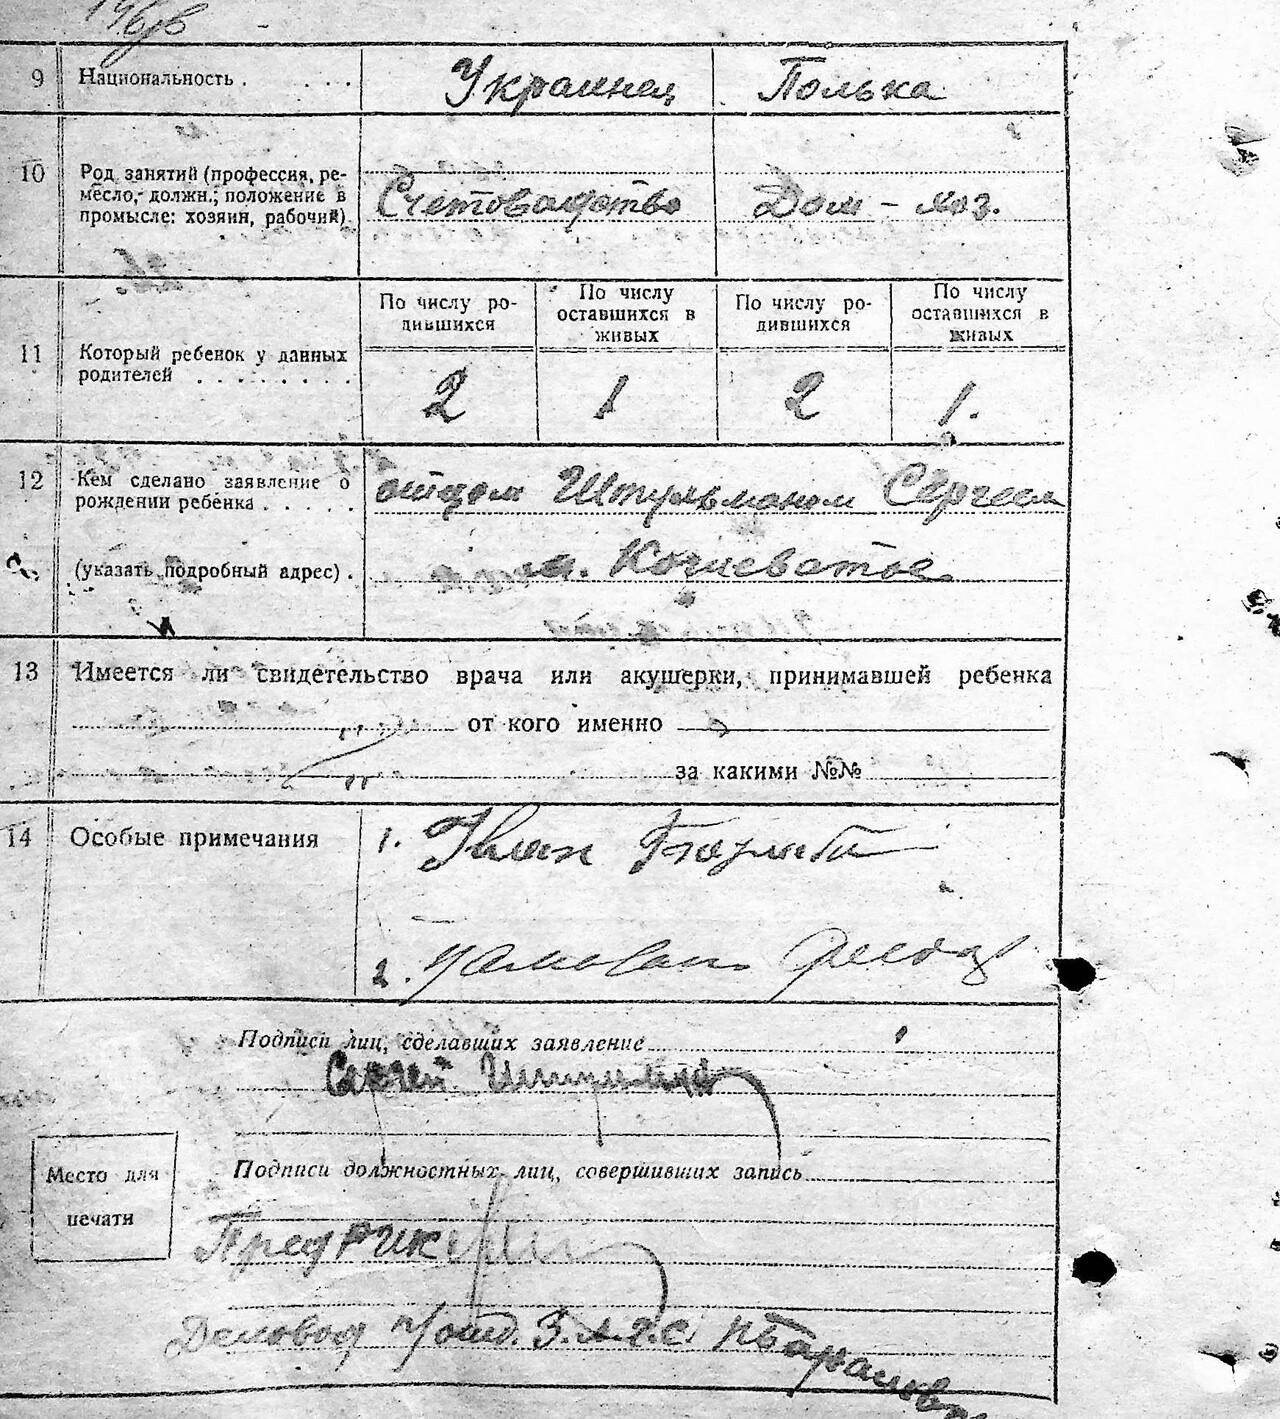 9 Национальность . . . . . Украинец Полька
10 Род занятий (профессия, ре-
месло, должн.; положение в
промысле: хозяин, рабочий) Счетоводство Дом-хоз.
По числу ро-
дившихся По числу
оставшихся в
живых По числу ро-
дившихся По числу
оставшихся в
живых
11 Который ребенок у данных
родителей . . . . . . . . 2 1 2 1.
12 Кем сделано заявление о
рождении ребенка . . . . . отцом Штульманом Сергеем
(указать подробный адрес) . м. Кочиеватое
13 Имеется ли свидетельство врача или акушерки, принимавшей ребенка
от кого именно
за какими №№
14 Особые примечания 1. Иван
2.
Подписи лиц, сделавших заявление
Сергей Штульман
Подписи должностных лиц, совершивших запись
Место для
печати
Пред РИК
Деловод З.А.Г.С.